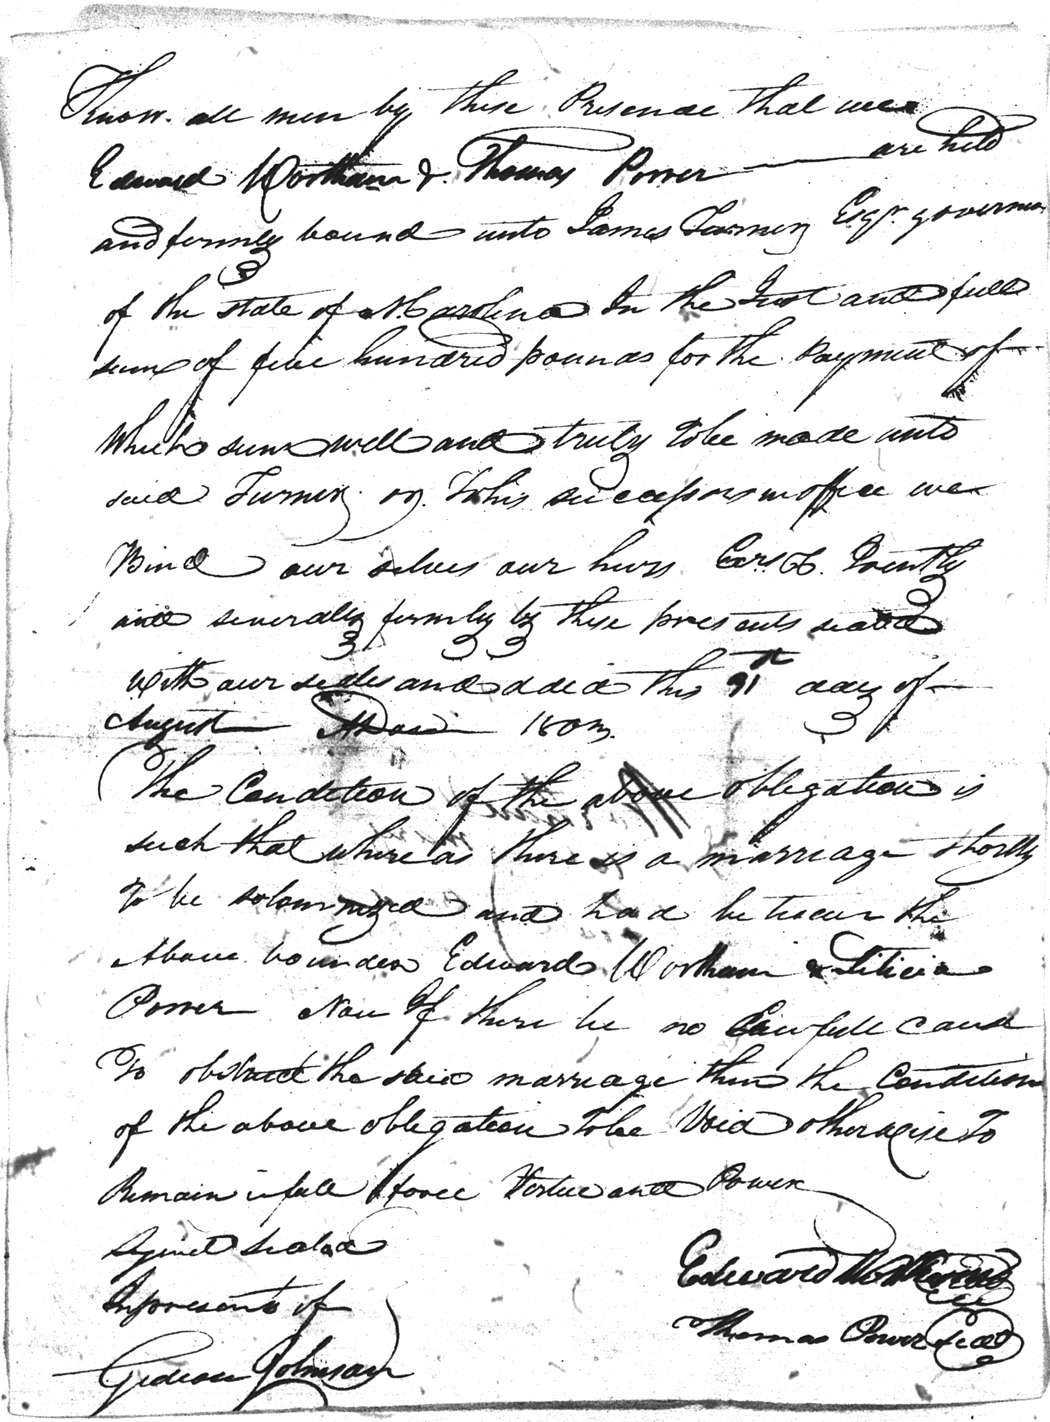 Know all men by these Presence that we
Edward Wortham & Thomas Power are held
and firmly bound unto James Turner Esqr. governor
of the state of N. Carolina In the Just and full
sum of five hundred pounds for the Payment of
Which sum well and truly to be made unto
said Turner or To his successors in office we
Bind our selves our heirs Exrs. &. Jointly
and severally firmly by these presents sealed
with our seales and dated this day of
August 1803.
The Condition of the above obligation is
such that where as there is a marriage shortly
To be solomnized and had between the
Above bounden Edward Wortham & Liticia
Power Now If there be no Lawfull cause
To obstruct the said marriage then the Condition
of the above obligation to be Void otherwise To
Remain in full force Vertue and Power
Signed sealed
In presents of
Gideon Johnson
Edward Wortham
Thomas Power seal